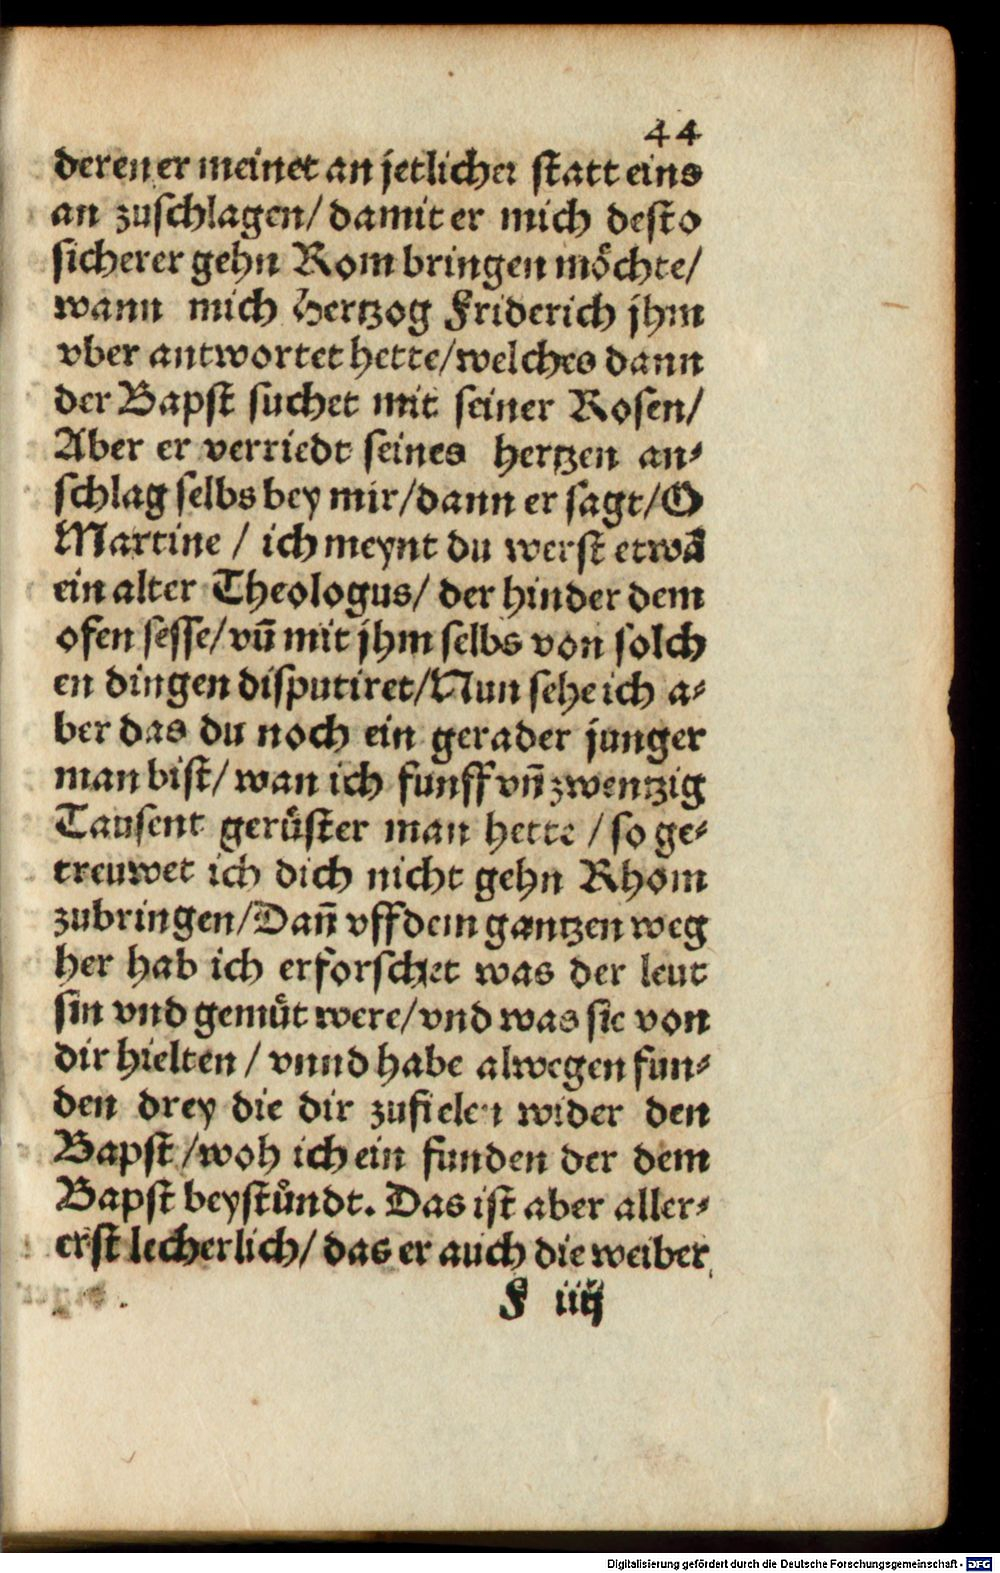 44
deren er meinet an jetlicher statt eins
an zuschlagen/ damit er mich desto
sicherer gehn Rom bringen möchte/
wann mich Hertzog Friderich jhm
vber antwortet hette/welches dann
der Bapst suchet mit seiner Rosen/
Aber er verriedt seines hertzen an⸗
schlag selbs bey mir/dann er sagt/O
Martine / ich meynt du werst etwā
ein alter Theologus/ der hinder dem
ofen sesse/ vn̄ mit jhm selbs von solch
en dingen disputiret/Nun sehe ich a⸗
ber das du noch ein gerader junger
man bist/ wan ich funff vn̄ zwentzig
Tausent gerüster man hette / so ge⸗
treuwet ich dich nicht gehn Rhom
zubringen/Dan̄ vff dem gantzen weg
her hab ich erforschet was der leut
sin vnd gemüt were/vnd was sie von
dir hielten / vnnd habe alwegen fun⸗
den drey die dir zufielen wider den
Bapst /woh ich ein funden der dem
Bapst beystündt. Das ist aber aller⸗
erst lecherlich/ das er auch die weiber
F iiij
Digitalisierung gefördert durch die Deutsche Forschungsgemeinschaft - DFG